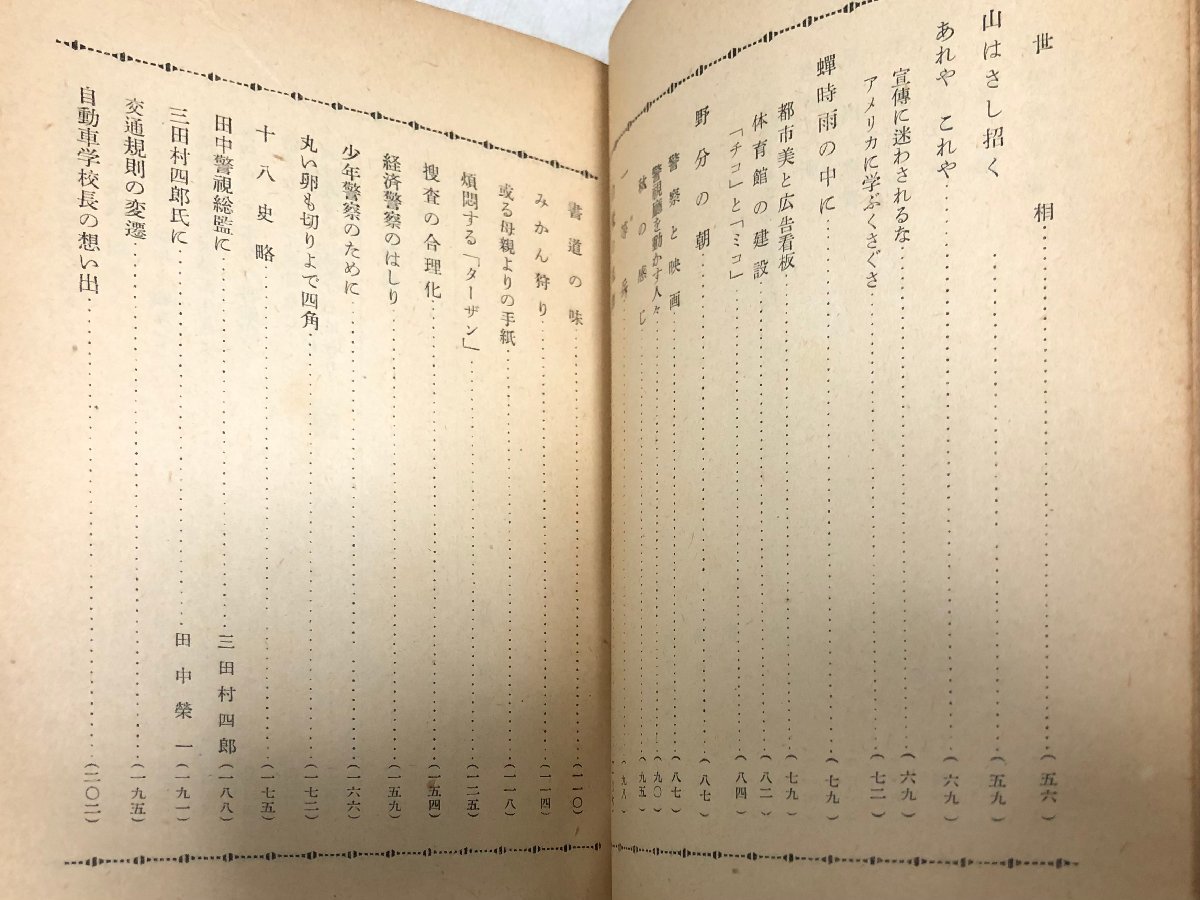 世相……(五六)
山はさし招く……(五九)
あれや これや……(六九)
宣傳に迷わされるな……(六九)
アメリカに学ぶくさぐさ……(七二)
蟬時雨の中に……(七九)
都市美と広告看板……(七九)
体育館の建設……(八二)
「チコ」と「ミコ」……(八四)
野分の朝……(八七)
警察と映画……(八七)
警視廳を動かす人々……(九〇)
の感じ……(九五)
書道の味……(一一〇)
みかん狩り……(一一四)
或る母親よりの手紙……(一一八)
煩悶する「ターザン」……(一二五)
捜査の合理化……(一五四)
経済警察のはしり……(一五九)
少年警察のために……(一六六)
丸い卵も切りよで四角……(一七二)
十八史略……(一七五)
田中警視総監に……三田村四郎(一八八)
三田村四郎氏に……田中榮一(一九一)
交通規則の変遷……(一九五)
自動車学校長の想い出……(二〇二)